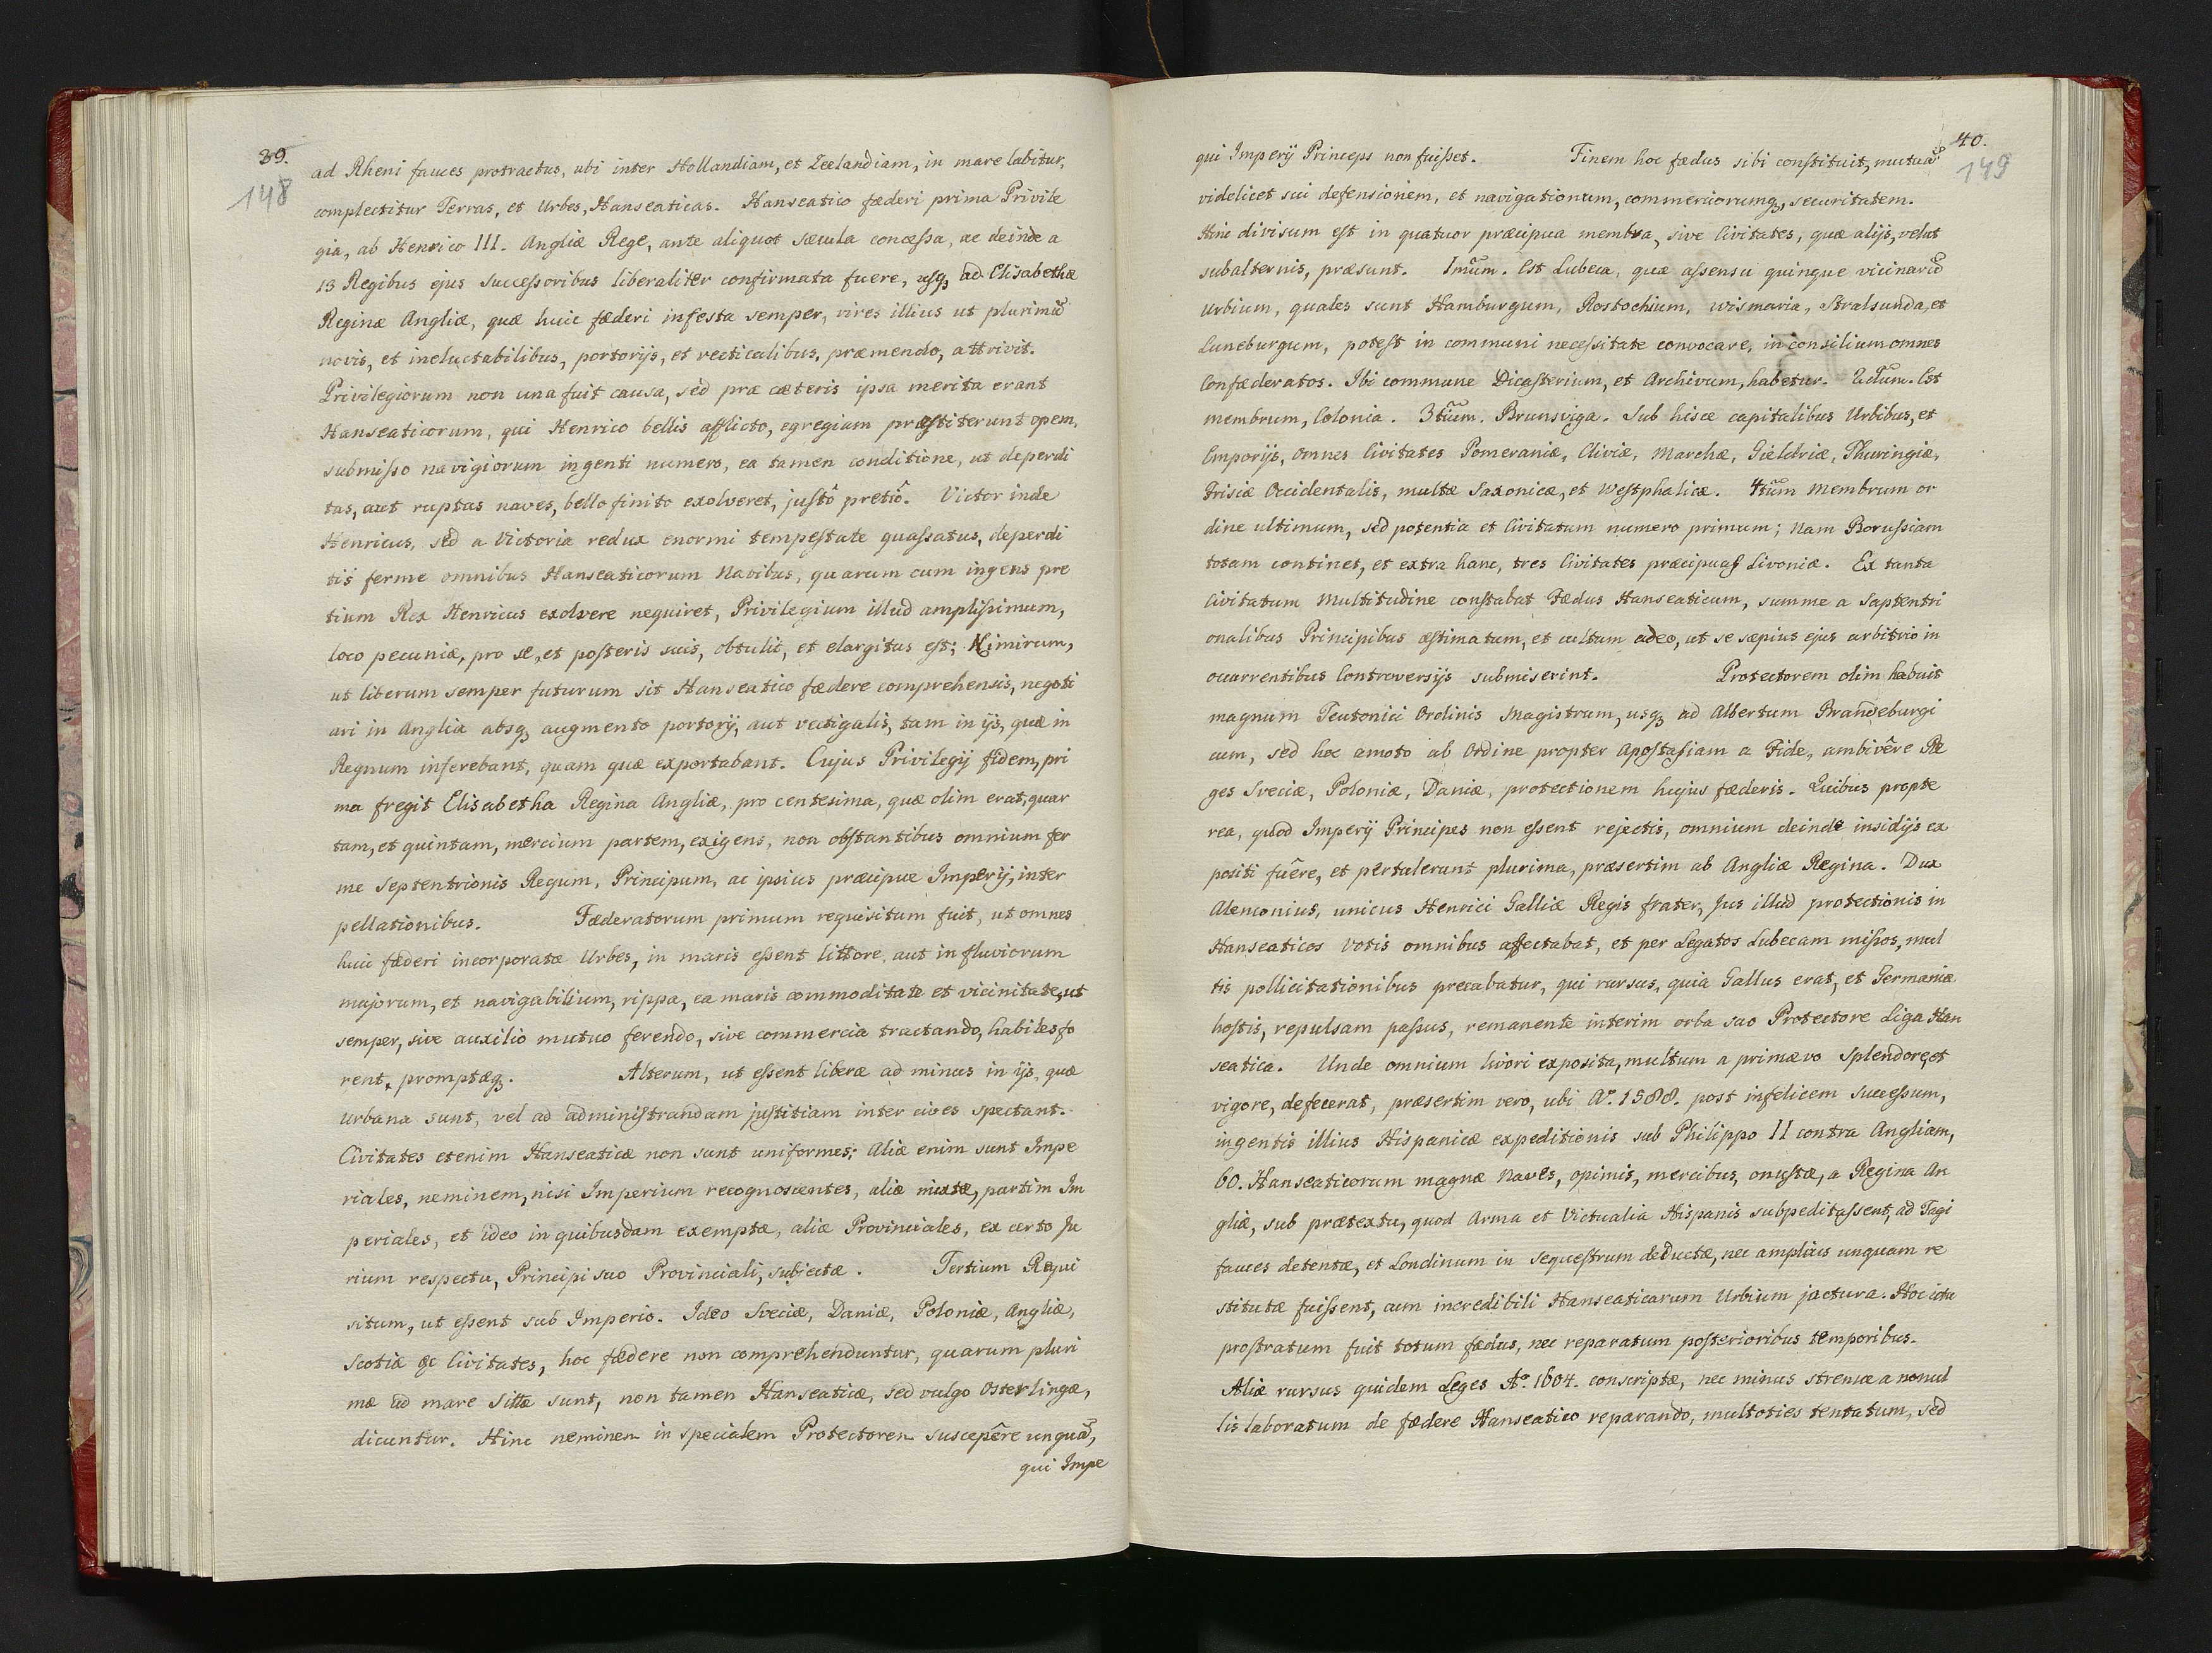 39.
148
ad Rheni fauces protractus, ubi inter Hollandiam, et Zeelandiam, in mare labitur,
complectitur Terras, et Urbes, Hanseaticas. Hanseatico fæderi prima Privile
gia, ab Henrico III. Angliæ Rege, ante aliquot sæcula concessa, ac deinde a
13 Regibus ejus successoribus liberaliter confirmata fuere, usqꝫ ad Elisabethæ
Reginæ Angliæ, quæ huic fæderi infesta semper, vires illius ut plurimũ
novis, et ineluctabilibus, portorijs, et vectigalibus, præmendo, attrivit.
Privilegiorum non una fuit causa, sed præ cæteris ipsa merita erant
Hanseaticorum, qui Henrico bellis afflicto, egregiam præstiterunt opem,
submisso navigiorum ingenti numero, ea tamen conditione, ut deperdi
tas, aut ruptas naves, bello finito exolveret, justô pretiô. Victor inde
Henricus, sed a Victoria redux enormi tempestate quassatus, deperdi
tis ferme omnibus Hanseaticorum Navibus, quarum cum ingens pre
tium Rex Henricus exolvere nequiret, Privilegium illud amplissimum,
loco pecuniæ, pro se, et posteris suis, obtulit, et elargitus est; Nimirum,
ut liberum semper futurum sit Hanseatico fædere comprehensis, negoti
ari in Anglia absqꝫ augmento portorij, aut vectigalis, tam in ijs, quæ in
Regnum inferebant, quam quæ exportabant. Cujus Privilegij fidem, pri
ma fregit Elisabetha Regina Angliæ, pro centesima, quæ olim erat, quar
tam, et quintam, mercium partem, exigens, non obstantibus omnium fer
me Septentrionis Regum, Principum, ac ipsius præcipue Imperij, inter
pellationibus. Fæderatorum primum requisitum fuit, ut omnes
huic fæderi incorporatæ Urbes, in maris essent littore, aut in fluviorum
majorum, et navigabilium, rippa, ea maris commoditate et vicinitate, ut
semper, sive auxilio mutuo ferendo, sive commercia tractando, habiles fo
rent, promptæqꝫ. Alterum, ut essent liberæ ad minus in ijs, quæ
Urbana sunt, vel ad administrandam justitiam inter cives spectant.
Civitates etenim Hanseaticæ non sunt uniformes; Aliæ enim sunt Impe
riales, neminem, nisi Imperium recognoscentes, aliæ mixtæ, partim Im
periales, et ideo in quibusdam exemptæ, aliæ Provinciales, ex certo Ju
rium respectu, Principi suo Provinciali, subjectæ. Tertium Requi
situm, ut essent sub Imperio. Ideo Sveciæ, Daniæ, Poloniæ, Angliæ,
Scotiæ &c Civitates, hoc fædere non comprehenduntur, quarum pluri
mæ ad mare sittæ sunt, non tamen Hanseaticæ, sed vulgo Osterlingæ,
dicuntur. Hinc neminen in specialem Protectoren suscepêre unquã,
qui Impe
40.
149
qui Imperij Princeps non fuisset. Finem hoc fædus sibi constituit, mutuã
videlicet sui defensionem, et navigationum, commerciorumqꝫ, securitatem.
Hinc divisum est in quatuor præcipua membra, sive Civitates, quæ alijs, velut
subalternis, præsunt. 1mũm. Est Lubeca, quæ assensu quinque vicinarũ
Urbium, quales sunt Hamburgum, Rostochium, Wismaria, Stralsunda, et
Luneburgum, potest in communi necessitate convocare, in consilium omnes
Confæderatos. Ibi commune Dicasterium, et Archivum, habetur. 2dũm. Est
membrum, Colonia. 3tiũm. Brunsviga. Sub hisce capitalibus Urbibus, et
Emporijs, omnes Civitates Pomeraniæ, Cliviæ, Marchæ, Gieldriæ, Thuringiæ,
Frisiæ Occidentalis, multæ Saxonicæ, et Westphalicæ. 4tũm Membrum or
dine ultimum, sed potentia et Civitatum numero primum; Nam Borussiam
totam continet, et extra hanc, tres Civitates præcipuas Livoniæ. Ex tanta
Civitatum Multitudine constabat Fædus Hanseaticum, summe a Saptentri
onalibus Principibus æstimatum, et cultum adeo, ut se sæpius ejus arbitrio in
occurrentibus Controversijs submiserint. Protectorem olim habuit
magnum Teutonici Ordinis Magistrum, usqꝫ ad Albertum Brandeburgi
cum, sed hoc amoto ab Ordine propter Apostasiam a Fide, ambivêre Re
ges Sveciæ, Poloniæ, Daniæ, protectionem hujus fæderis. Quibus propte
rea, quod Imperij Principes non essent rejectis, omnium deinde insidijs ex
positi fuêre, et pertulerunt plurima, præsertim ab Angliæ Regina. Dux
Alenconius, unicus Henrici Galliæ Regis frater, Jus illud protectionis in
Hanseaticos Votis omnibus affectabat, et per Legatos Lubecam missos, mul
tis pollicitationibus precabatur, qui rursus, quia Gallus erat, et Germaniæ
hostis, repulsam passus, remanente interim orba suo Protectore Liga Han
seatica. Unde omnium livori exposita, multum a primævo Splendore, et
vigore, defecerat, præsertim vero, ubi Aº. 1588. post infelicem successum,
ingentis illius Hispanicæ expeditionis sub Philippo II contra Angliam,
60. Hanseaticorum magnæ Naves, opimis, mercibus, onustæ, a Regina An
gliæ, sub prætextu, quod Arma et Victualia Hispanis subpeditassent, ad Tagi
fauces detentæ, et Londinum in Sequestrum deductæ, nec amplius unquam re
stitutæ fuissent, cum incredibili Hanseaticarum Urbium jactura. Hoc ictu
prostratum fuit totum fædus, nec reparatum posterioribus temporibus.
Aliæ rursus quidem Leges Aº. 1604. conscriptæ, nec minus strenue a nonul
lis laboratum de fædere Hanseatico reparando, multoties tentatum, sed